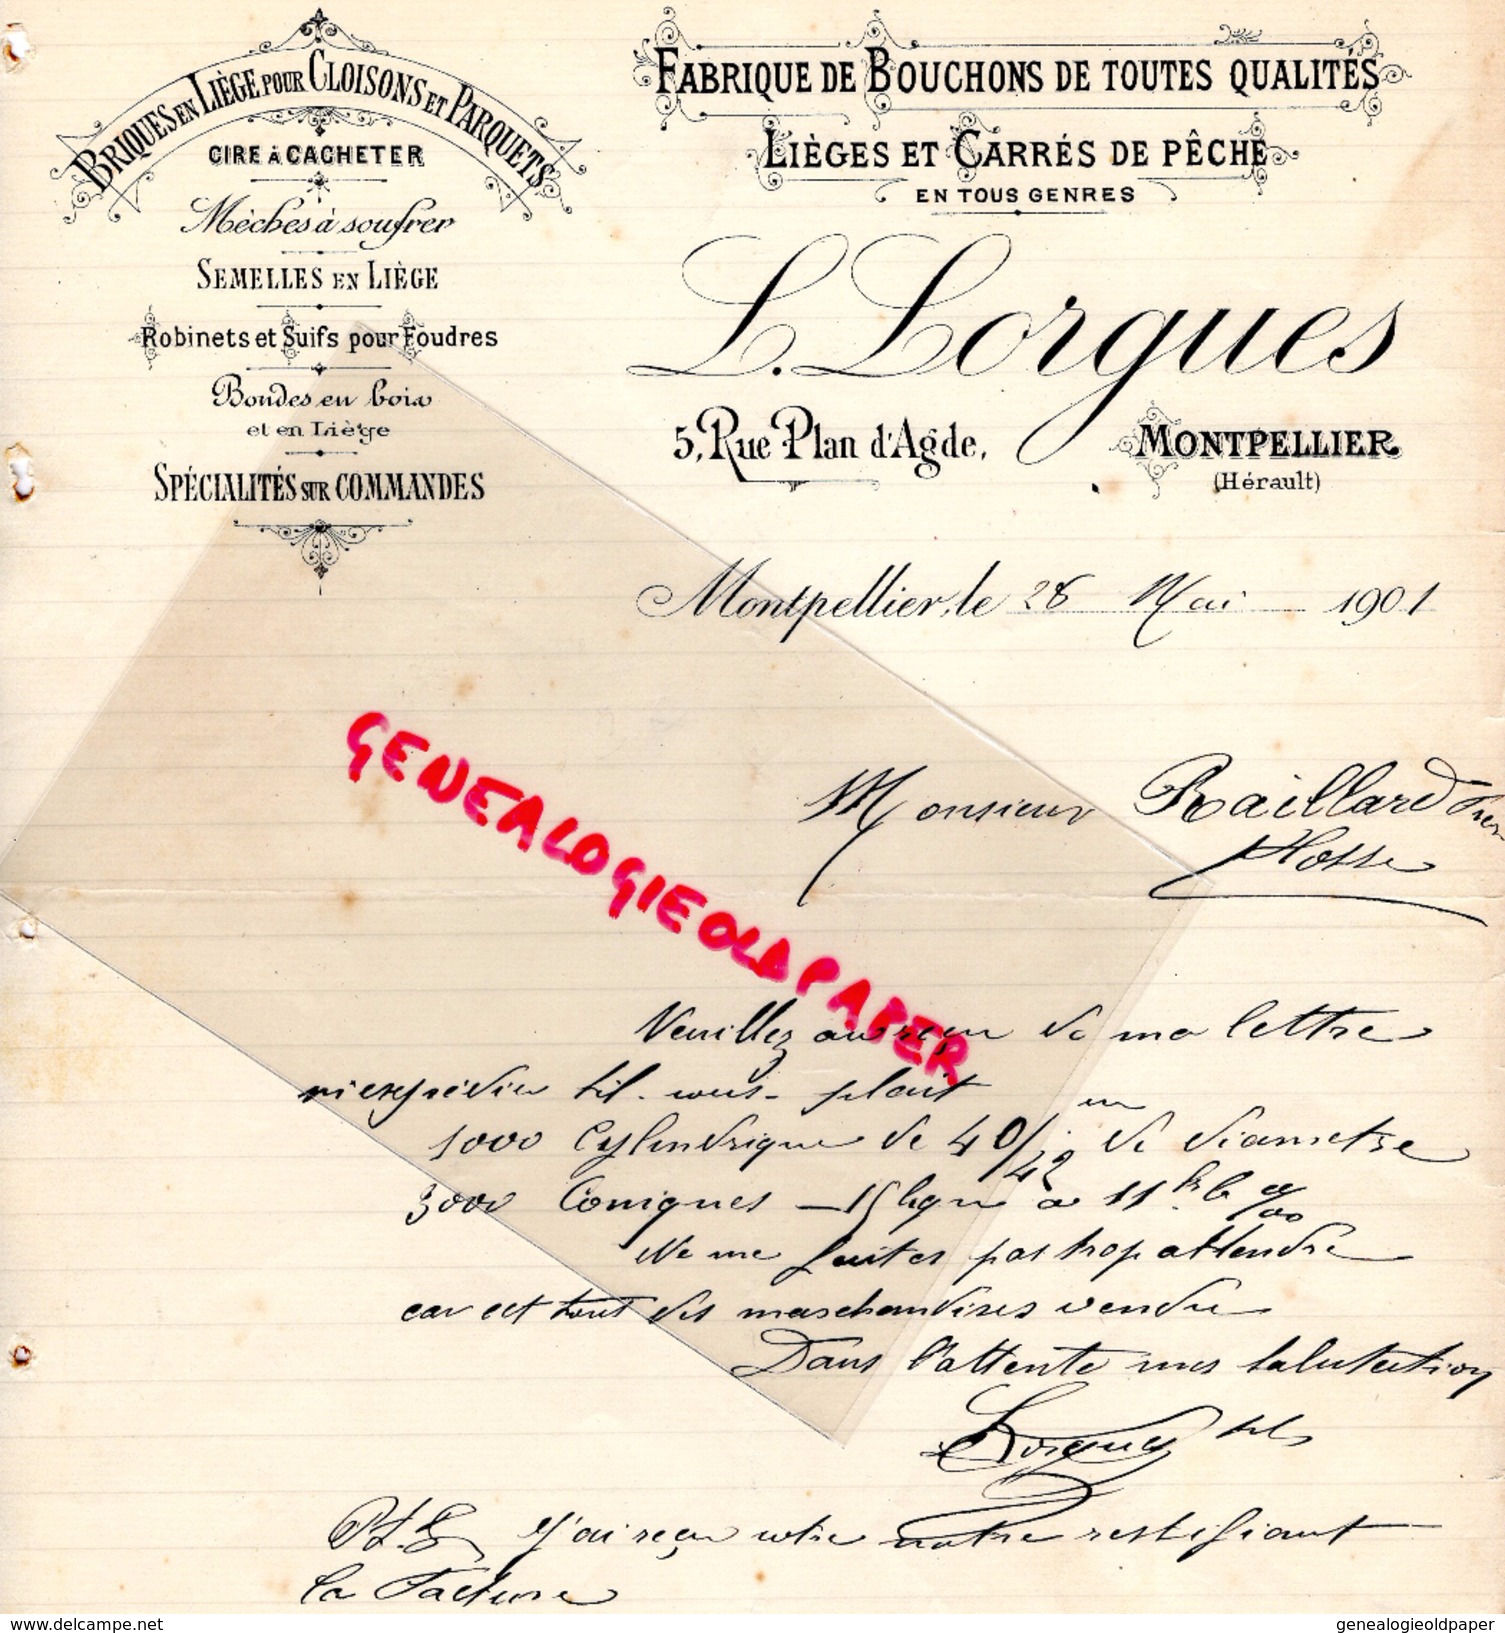 BRIQUES EN LIÈGE POUR CLOISONS ET PARQUETS
CIRE À CACHETER
Mèches à soufrer
SEMELLES EN LIÈGE
Robinets et Suifs pour Foudres
Bondes en bois
et en Liège
SPÉCIALITÉS SUR COMMANDES
FABRIQUE DE BOUCHONS DE TOUTES QUALITÉS
LIÈGES ET CARRÉS DE PÊCHE
EN TOUS GENRES
L. Lorgues
5, Rue Plan d'Agde,
MONTPELLIER
(Hérault)
Montpellier, le 28 Mai 1901
GENEALOGIEOLDPAPER
Monsieur Raillard
Veuillez au reçu de ma lettre
m'expédier sil vous plait
1000 Cylindrique de 40/42 m de diametre
3000 Coniques 15 ligne à 11 f b %00
Ne me faites pas trop attendre
car cet tout des marchandises vendu
Dans l'attente mes salutation
Lorgues fils
P.S. J'ai reçu votre notre restifiant
la Facture
delcampe.net
genealogieoldpaper